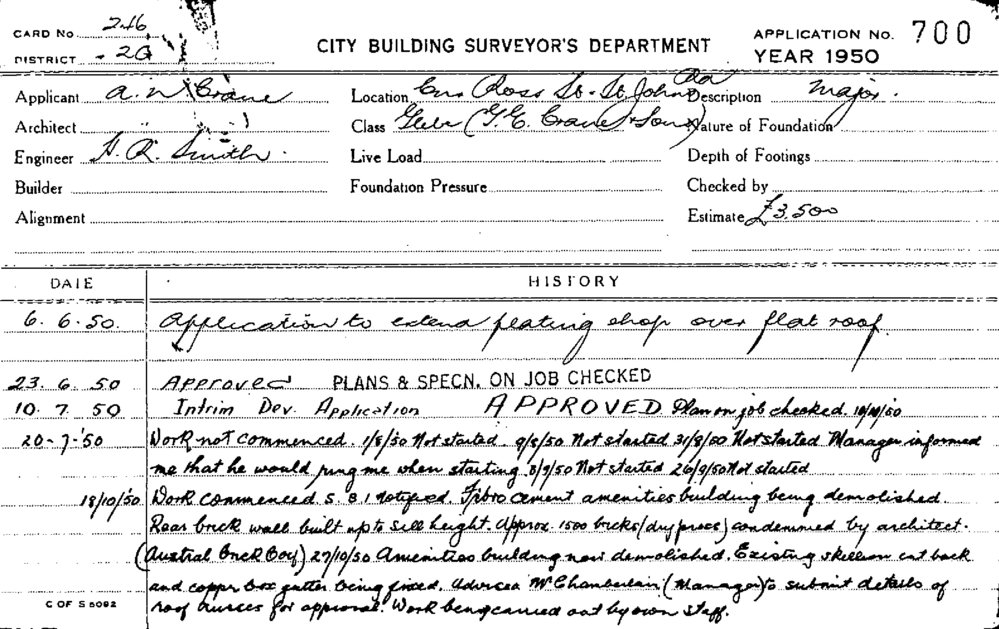 CARD No. 246
DISTRICT - 2G
CITY BUILDING SURVEYOR'S DEPARTMENT
APPLICATION No. 700
YEAR 1950
Applicant A. W. Crane
Location Cnr Ross St. - St. Johns Rd
Description Major.
Architect
Class Glebe (G. E. Crane & Sons)
Nature of Foundation
Engineer H. R. Smith.
Live Load
Depth of Footings
Builder
Foundation Pressure
Checked by
Alignment
Estimate £3,500
DATE HISTORY
6. 6. 50. Application to extend plating shop over flat roof.
23. 6. 50 Approved PLANS & SPECN. ON JOB CHECKED
10. 7. 50 Intrim Dev. Application APPROVED. Plan on job checked. 10/10/50
20-7-'50 Work not commenced. 1/8/50 Not started. 9/8/50 Not started 31/8/50 Not started Manager informed
me that he would ring me when starting 8/9/50 Not started 26/9/50 Not started
18/10/50 Work commenced. S. B. I notified. Fibro cement amenities building being demolished.
Rear brick wall built up to sill height. Approx. 1500 bricks (dry press) condemned by architect.
(Austral Brick Coy) 27/10/50 Amenities building now demolished. Existing skillion cut back
and copper box gutter being fixed. Advised Mr Chamberlain (Manager) to submit details of
roof for approval. Work being carried out by own staff.
C OF S 5092